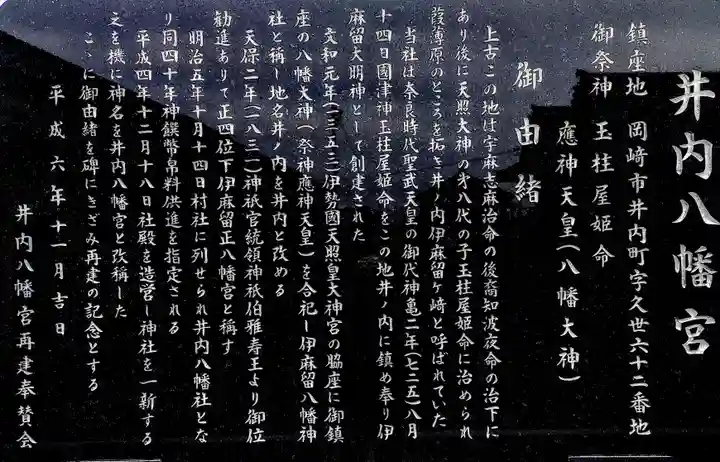 井内八幡宮
鎮座地 岡﨑市井内町字久世六十二番地
御祭神 玉柱屋姫命
應神天皇(八幡大神)
御由緒
上古この地は宇麻志麻治命の後裔知波夜命の治下に
あり後に天照大神の㐧八代の子玉柱屋姫命に治められ
葭薄原のところを拓き井ノ内伊麻留ヶ崎と呼ばれていた
当社は奈良時代聖武天皇の御代神亀二年(七二五)八月
十四日國津神玉柱屋姫命をこの地井ノ内に鎮め奉り伊
麻留大明神として創建された
文和元年(一三五二)伊勢國天照皇大神宮の脇座に御鎮
座の八幡大神(祭神應神天皇)を合祀し伊麻留八幡神
社と稱し地名井ノ内を井内と改める
天保二年(一八三一)神祇官統領神祇伯雅寿王より御位
勧進ありて正四位下伊麻留正八幡宮と稱す
明治五年十月十四日村社に列せられ井内八幡社とな
り同四十年神饌幣帛料供進を指定される
平成四年十二月十八日社殿を造営し神社を一新する
之を機に神名を井内八幡宮と改稱した
ここに御由緒を碑にきざみ再建の記念とする
平成六年十一月吉日
井内八幡宮再建奉賛会